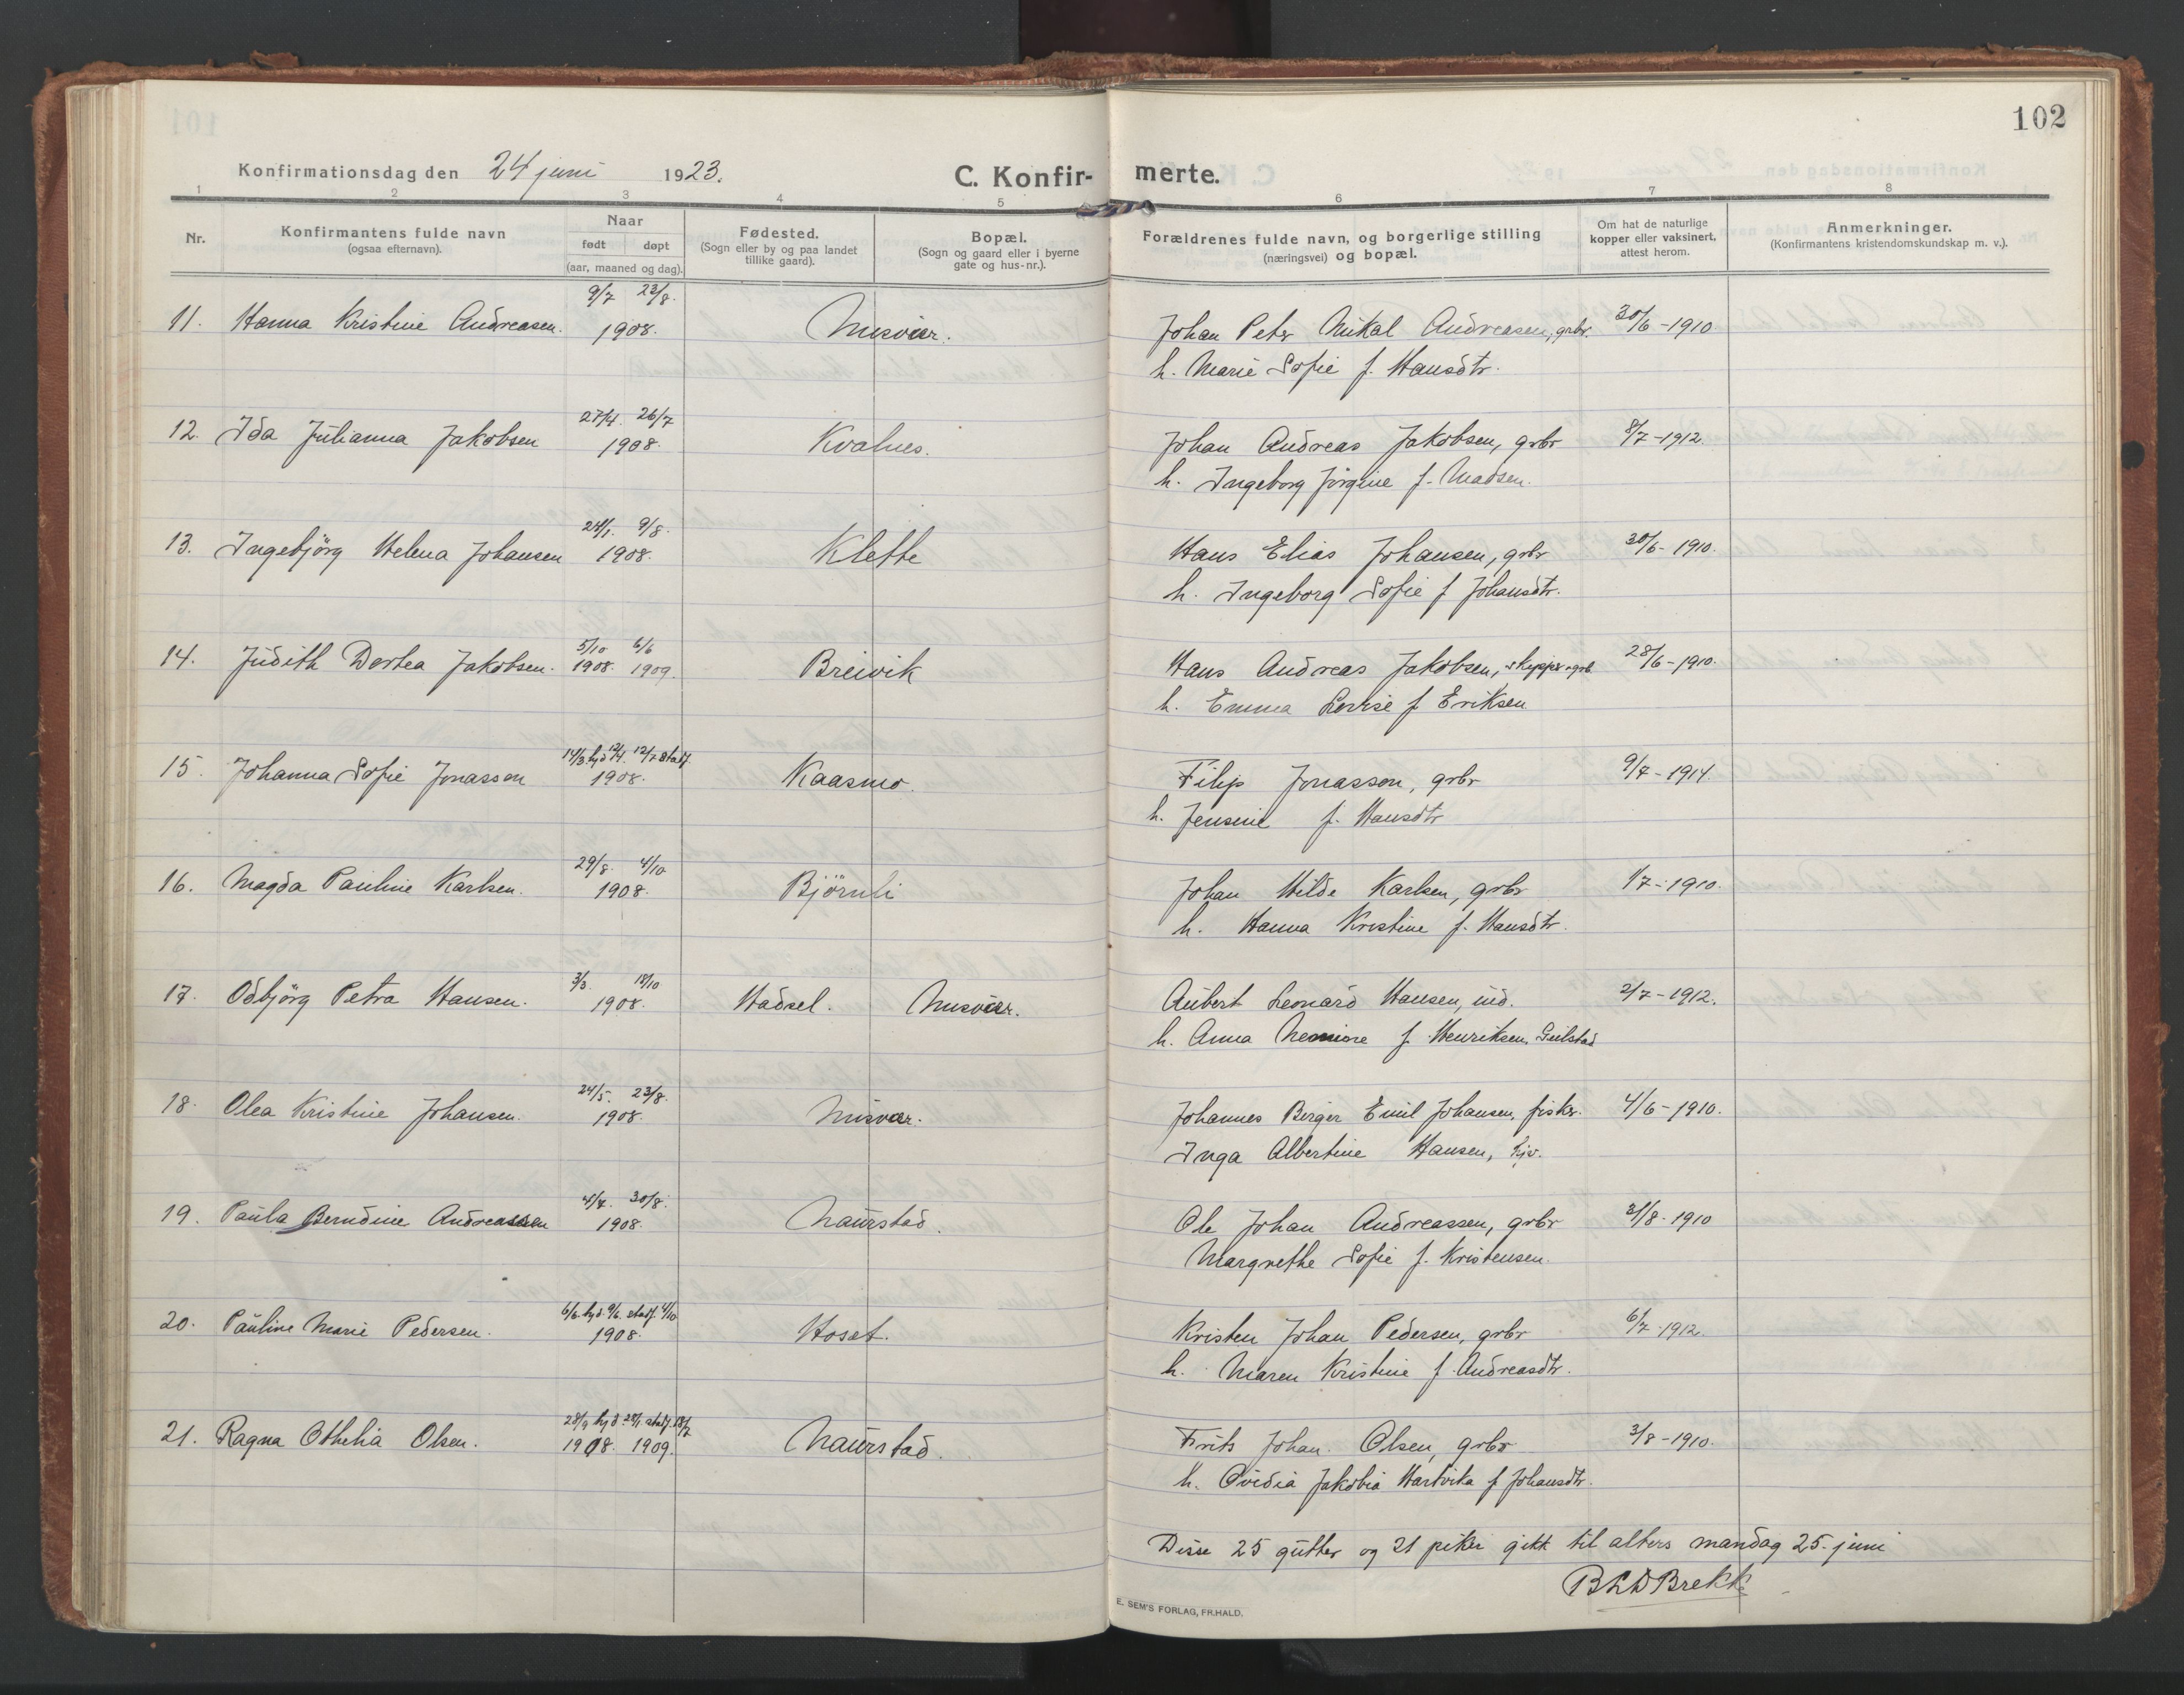 102
Konfirmationsdag den 24 juni 1923.
C. Konfir- merte.
1 2 3 4 5 6 7 8
Nr.
Konfirmantens fulde navn
(ogsaa efternavn).
Naar
født døpt
(aar, maaned og dag).
Fødested.
(Sogn eller by og paa landet
tillike gaard).
Bopæl.
(Sogn og gaard eller i byerne
gate og hus-nr.).
Forældrenes fulde navn, og borgerlige stilling
(næringsvei) og bopæl.
Om hat de naturlige
kopper eller vaksinert,
attest herom.
Anmerkninger.
(Konfirmantens kristendomskundskap m. v.).
9/7 23/8.
11. Hanna Kristine Andreasen. 1908. Misvær. Johan Peter Mikal Andreasen, grbr. 30/6-1910
h. Marie Sofie f. Hansdtr.
27/4. 26/7
12. Ida Julianna Jakobsen 1908. Kvalnes. Johan Andreas Jakobsen, grbr 8/7-1912.
h. Ingeborg Jørgine f. Madsen.
24/1. 9/8.
13. Ingebjörg Helena Johansen 1908. Klette Hans Elias Johansen, grbr 30/6-1910.
h. Ingeborg Sofie f Johansdtr.
5/10 6/6
14. Judith Dortea Jakobsen. 1908. 1909. Breivik Hans Andreas Jakobsen, skipper grb 28/6-1910.
h. Emma Lovise f Eriksen
14/3. hjd 12/4. 12/7 stadf.
15. Johanna Sofie Jonassen 1908. Kaasmo. Filip Jonassen, grbr 9/7-1914.
h. Jensine f. Hansdtr
29/8. 4/10
16. Magda Pauline Karlsen. 1908. Björnli Johan Hilde Karlsen, grbr 1/7-1910.
h. Hanna Kristine f. Hansdtr.
3/3. 18/10
17. Odbjörg Petra Hansen. 1908. Hadsel. Misvær. Aubert Leonard Hansen, ind. 2/7-1912.
h. Anna f. Henriksen,
24/5. 23/8.
18. Olea Kristine Johansen. 1908. Misvær. Johannes Berger Emil Johansen, fisker. 4/6-1910.
Inga Albertine Hansen,
4/7. 30/8.
19. Paula Berndine Andreassen 1908. Naurstad. Ole Johan Andreassen, grbr 31/8-1910
Margrethe Sofie f. Kristensen.
6/6. hjd. 9/6. stadf. 4/10
20. Pauline Marie Pedersen. 1908. Hoset. Kristen Johan Pedersen, grbr 6/7-1912.
h. Maren Kristine f. Andreasdtr.
28/9 hjd. 28/1. stadf. 18/7
21. Ragna Othelia Olsen. 1908. 1909. Naurstad. Frits Johan Olsen, grbr 3/8-1910.
h. Ovidia Jakobia Hartvika f Johansdtr.
Disse 25 gutter og 21 piker gikk til alters mandag 25. juni
BLDBrekke
E. SEM'S FORLAG, FR.HALD.